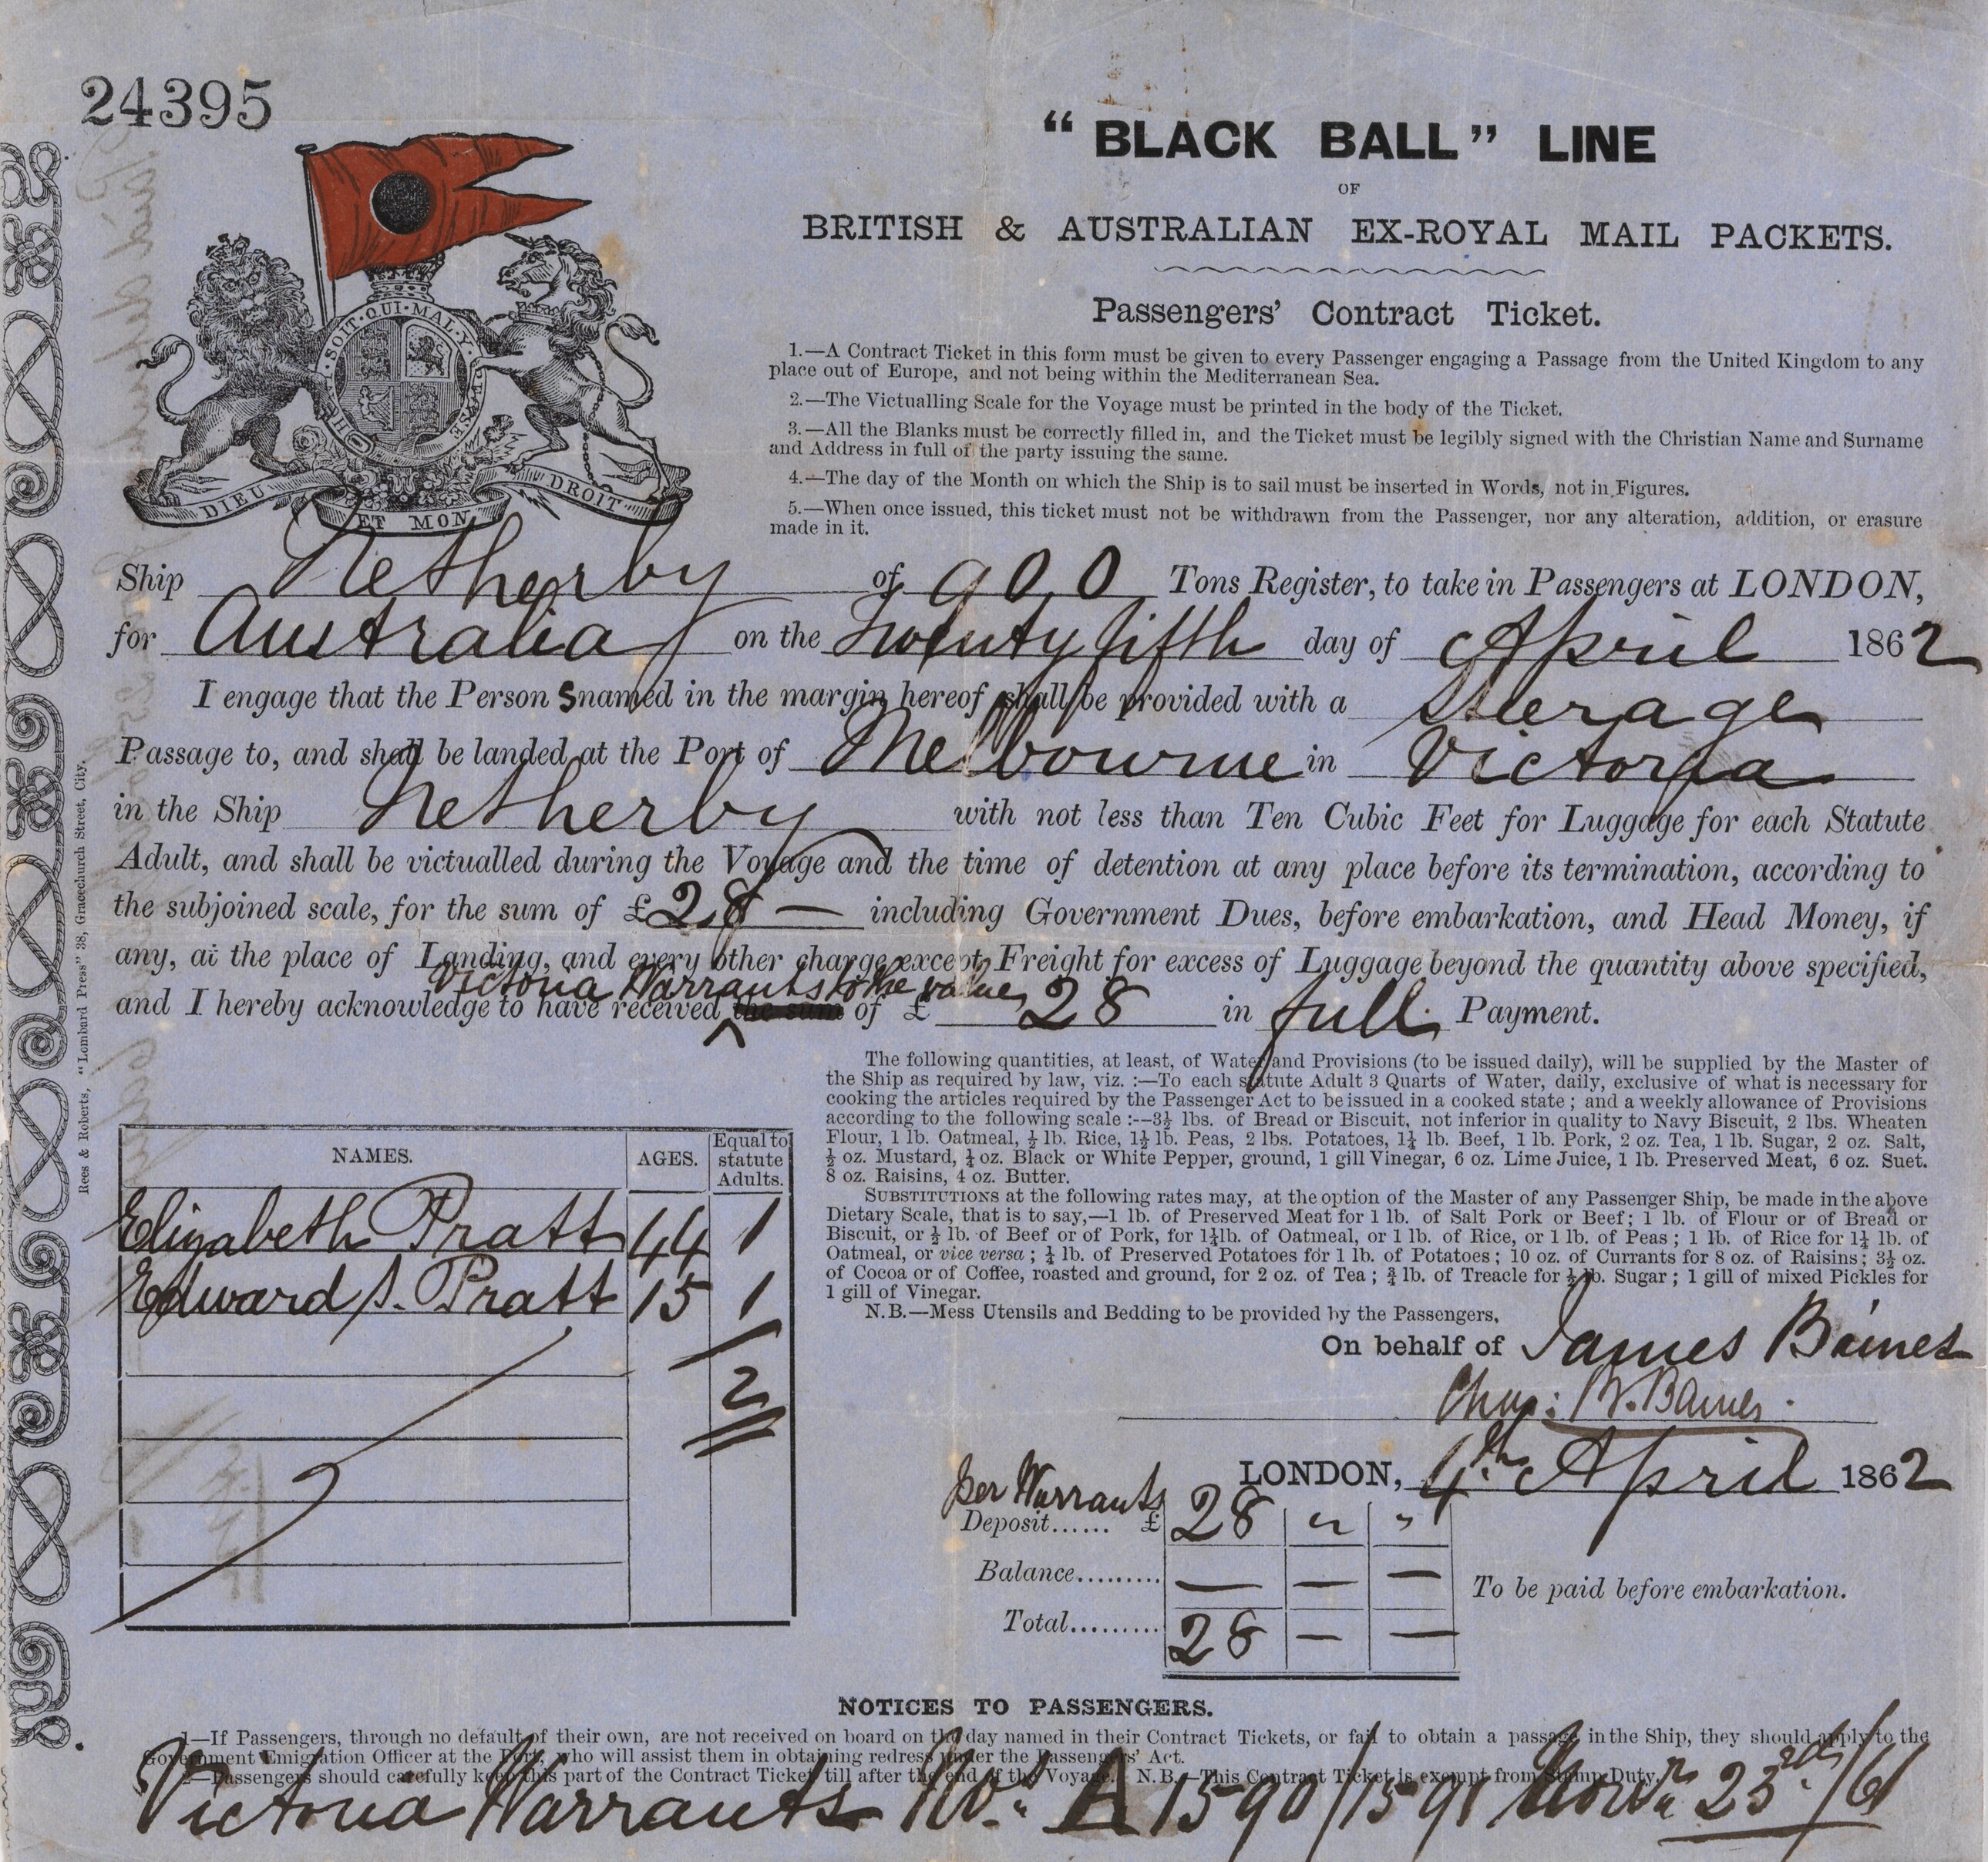 24395
"BLACK BALL" LINE
OF
BRITISH & AUSTRALIAN EX-ROYAL MAIL PACKETS.
Passengers' Contract Ticket.
HONI·SOIT·QUI·MAL·Y·PENSE
DIEU ET MON DROIT
1.—A Contract Ticket in this form must be given to every Passenger engaging a Passage from the United Kingdom to any
place out of Europe, and not being within the Mediterranean Sea.
2.—The Victualling Scale for the Voyage must be printed in the body of the Ticket.
3.—All the Blanks must be correctly filled in, and the Ticket must be legibly signed with the Christian Name and Surname
and Address in full of the party issuing the same.
4.—The day of the Month on which the Ship is to sail must be inserted in Words, not in Figures.
5.—When once issued, this ticket must not be withdrawn from the Passenger, nor any alteration, addition, or erasure
made in it.
Ship Netherby of 900 Tons Register, to take in Passengers at LONDON,
for Australia on the Twenty fifth day of April 1862
I engage that the Persons named in the margin hereof shall be provided with a Steerage
Passage to, and shall be landed at the Port of Melbourne in Victoria
in the Ship Netherby with not less than Ten Cubic Feet for Luggage for each Statute
Adult, and shall be victualled during the Voyage and the time of detention at any place before its termination, according to
the subjoined scale, for the sum of £28 — including Government Dues, before embarkation, and Head Money, if
any, at the place of Landing, and every other charge except Freight for excess of Luggage beyond the quantity above specified,
Victoria Warrants to the value
and I hereby acknowledge to have received the sum of £ 28 in full Payment.
The following quantities, at least, of Water and Provisions (to be issued daily), will be supplied by the Master of
the Ship as required by law, viz. :—To each statute Adult 3 Quarts of Water, daily, exclusive of what is necessary for
cooking the articles required by the Passenger Act to be issued in a cooked state ; and a weekly allowance of Provisions
according to the following scale :--3½ lbs. of Bread or Biscuit, not inferior in quality to Navy Biscuit, 2 lbs. Wheaten
Flour, 1 lb. Oatmeal, ½ lb. Rice, 1½ lb. Peas, 2 lbs. Potatoes, 1¼ lb. Beef, 1 lb. Pork, 2 oz. Tea, 1 lb. Sugar, 2 oz. Salt,
½ oz. Mustard, ¼ oz. Black or White Pepper, ground, 1 gill Vinegar, 6 oz. Lime Juice, 1 lb. Preserved Meat, 6 oz. Suet.
8 oz. Raisins, 4 oz. Butter.
SUBSTITUTIONS at the following rates may, at the option of the Master of any Passenger Ship, be made in the above
Dietary Scale, that is to say,—1 lb. of Preserved Meat for 1 lb. of Salt Pork or Beef; 1 lb. of Flour or of Bread or
Biscuit, or ½ lb. of Beef or of Pork, for 1¼lb. of Oatmeal, or 1 lb. of Rice, or 1 lb. of Peas ; 1 lb. of Rice for 1¼ lb. of
Oatmeal, or vice versa ; ¼ lb. of Preserved Potatoes for 1 lb. of Potatoes; 10 oz. of Currants for 8 oz. of Raisins; 3½ oz.
of Cocoa or of Coffee, roasted and ground, for 2 oz. of Tea ; ¾ lb. of Treacle for ½ lb. Sugar ; 1 gill of mixed Pickles for
1 gill of Vinegar.
N.B.—Mess Utensils and Bedding to be provided by the Passengers.
NAMES. AGES. Equal to statute Adults.
Elizabeth Pratt 44 1
Edward S. Pratt 15 1
2
On behalf of James Baines
Chas: B. Baines.
LONDON, 4th April 1862
per Warrants
Deposit...... £ 28 " "
Balance......... — — —
To be paid before embarkation.
Total......... 28 — —
NOTICES TO PASSENGERS.
1—If Passengers, through no default of their own, are not received on board on the day named in their Contract Tickets, or fail to obtain a passage in the Ship, they should apply to the
Government Emigration Officer at the Port, who will assist them in obtaining redress under the Passengers' Act.
2—Passengers should carefully keep this part of the Contract Ticket till after the end of the Voyage. N.B.—This Contract Ticket is exempt from Stamp Duty.
Victoria Warrants Nos. A 1590/1591 23rd /61
Rees & Roberts, "Lombard Press" 38, Gracechurch Street, City.